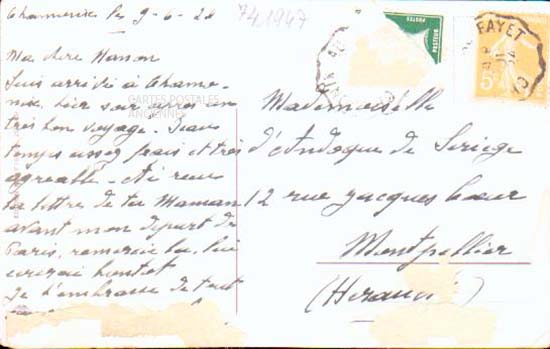 Chamonix le 9-6-26
741947
Ma chère Manon
Suis arrivé à Chamo-
nix hier soir après un
très bon voyage. Beau
temps assez frais et très
agréable - Ai reçu
la lettre de ta Maman
avant mon départ de
Paris, remercie la, lui
écrirai bientôt
Je t'embrasse de tout
CARTES POSTALES
ANCIENNES
POSTES
PASTEUR
FAYET
5c
Mademoiselle
d'Andoque de Seriège
12 rue Jacques Cœur
Montpellier
(Hérault)